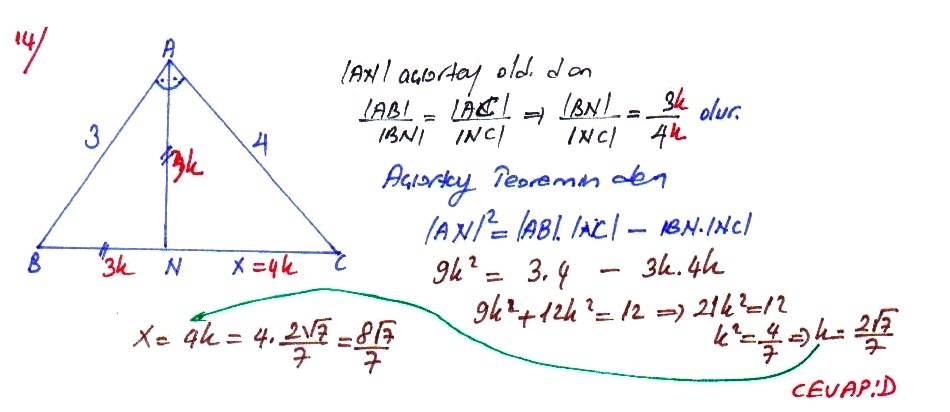 14/
A
3
4
3k
B
3k
N
x=4k
C
|AN| açıortay old. dan
|AB|/|BN| = |AC|/|NC| ⇒ |BN|/|NC| = 3k/4k olur.
Açıortay Teoreminden
|AN|² = |AB|.|AC| − |BN.|NC|
9k² = 3.4 − 3k.4k
9k²+12k²=12 ⇒ 21k²=12
k²=4/7 ⇒ k=2√7/7
x= 4k = 4.2√7/7 = 8√7/7
CEVAP:D